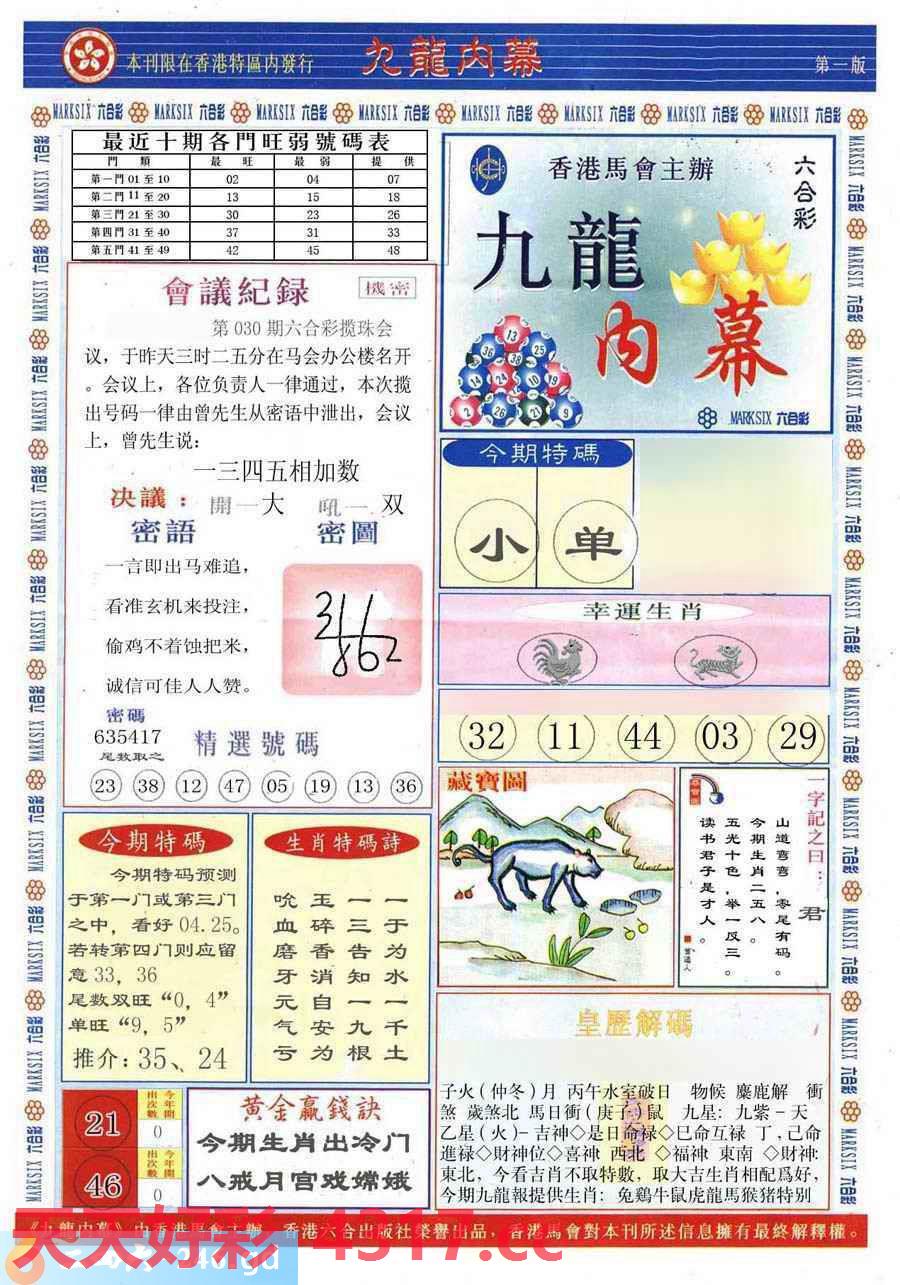 本刊限在香港特區内發行
九龍内幕
第一版
MARKSIX 六合彩
最近十期各門旺弱號碼表
門類 最旺 最弱 提供
第一門 01 至 10 02 04 07
第二門 11 至 20 13 15 18
第三門 21 至 30 30 23 26
第四門 31 至 40 37 31 33
第五門 41 至 49 42 45 48
香港馬會主辦
六合彩
九龍
内幕
MARKSIX 六合彩
會議紀録
機密
第 030 期六合彩揽珠会
议，于昨天三时二五分在马会办公楼名开
。会议上，各位负责人一律通过，本次揽
出号码一律由曾先生从密语中泄出，会议
上，曾先生说：
一三四五相加数
决議：開一大 吼一双
密語
密圖
一言即出马难追，
看准玄机来投注，
偷鸡不着蚀把米，
诚信可佳人人赞。
密碼
635417
尾数取之
精選號碼
23 38 12 47 05 19 13 36
今期特碼
小 单
幸運生肖
32 11 44 03 29
藏寶圖
一字記之曰：君
山道弯弯，零尾有码。
今期生肖二五八。
五光十色，举一反三。
读书君子是才人。
今期特碼
今期特码预测
于第一门或第三门
之中，看好 04.25。
若转第四门则应留
意 33，36
尾数双旺“0，4”
单旺“9，5”
推介：35、24
生肖特碼詩
一于为水一千土
一三告知一九根
玉碎香消自安为
吮血磨牙元气亏
21
今年開出次數
0
46
今年開出次數
0
黄金赢錢訣
今期生肖出冷门
八戒月宫戏嫦娥
皇歷解碼
子火（仲冬）月 丙午水室破日 物候 麋鹿解 衝
煞 歲煞北 馬日衝（庚子）鼠 九星：九紫－天
乙星（火）－吉神◇是日命禄◇巳命互禄 丁，己命
進禄◇財神位◇喜神 西北 ◇福神 東南 ◇財神：
東北，今看吉肖不取特數，取大吉生肖相配爲好，
今期九龍報提供生肖：兔鷄牛鼠虎龍馬猴猪特别
《九龍内幕》由香港馬會主辦 香港六合出版社榮譽出品，香港馬會對本刊所述信息擁有最終解釋權。
天天好彩 4317.cc